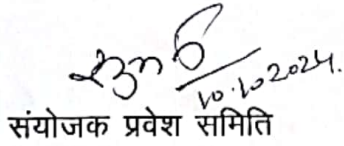 10.10.2024.
संयोजक प्रवेश समिति